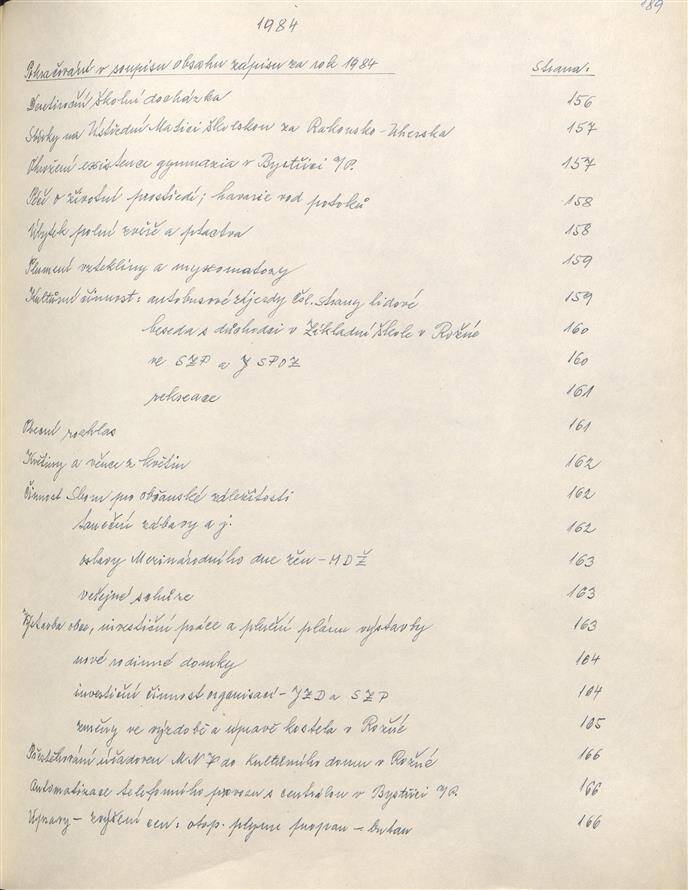 189
1984
Pokračování v soupisu obsahu zápisu za rok 1984 Strana.
Desetiroční školní docházka 156
Sbírky na Ústřední Matici Školskou za Rakousko-Uherska 157
Ohrožení existence gymnazia v Bystřici n/P. 157
Péče o životní prostředí; havarie vod potoků 158
Úbytek polní zvěře a ptactva 158
vztekliny a myxomatozy 159
Kulturní činnost: autobusové zájezdy Čsl. strany lidové 159
beseda s důchodci v Základní škole v Rožné 160
ve SZP a JSPOZ 160
rekreace 161
Obecní rozhlas 161
Květiny a věnce z květin 162
Činnost Sboru pro občanské záležitosti 162
taneční zábavy a j. 162
oslavy Mezinárodního dne žen - MDŽ 163
veřejné schůze 163
Výstavba obce, investiční práce a plnění plánu výstavby 163
nové rodinné domky 164
investiční činnost organisací - JZD a SZP 164
změny ve výzdobě a úpravě kostela v Rožné 165
Přestěhování úřadoven MNV do Kulturního domu v Rožné 166
Automatizace telefonního provozu s centrálou v Bystřici n/P. 166
Úpravy - zvýšení cen: otop. plynu propan - butan 166